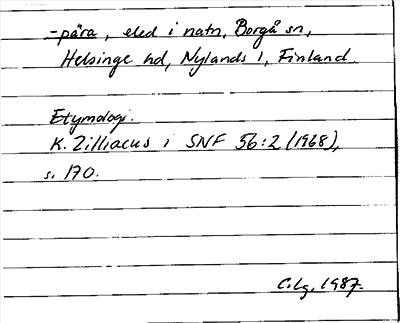 -pära, eled i natn, Borgå sn,
Helsinge hd, Nylands l, Finland.
Etymologi.
K. Zilliacus i SNF 56:2 (1968),
s. 170.
C.Lg. 1987.